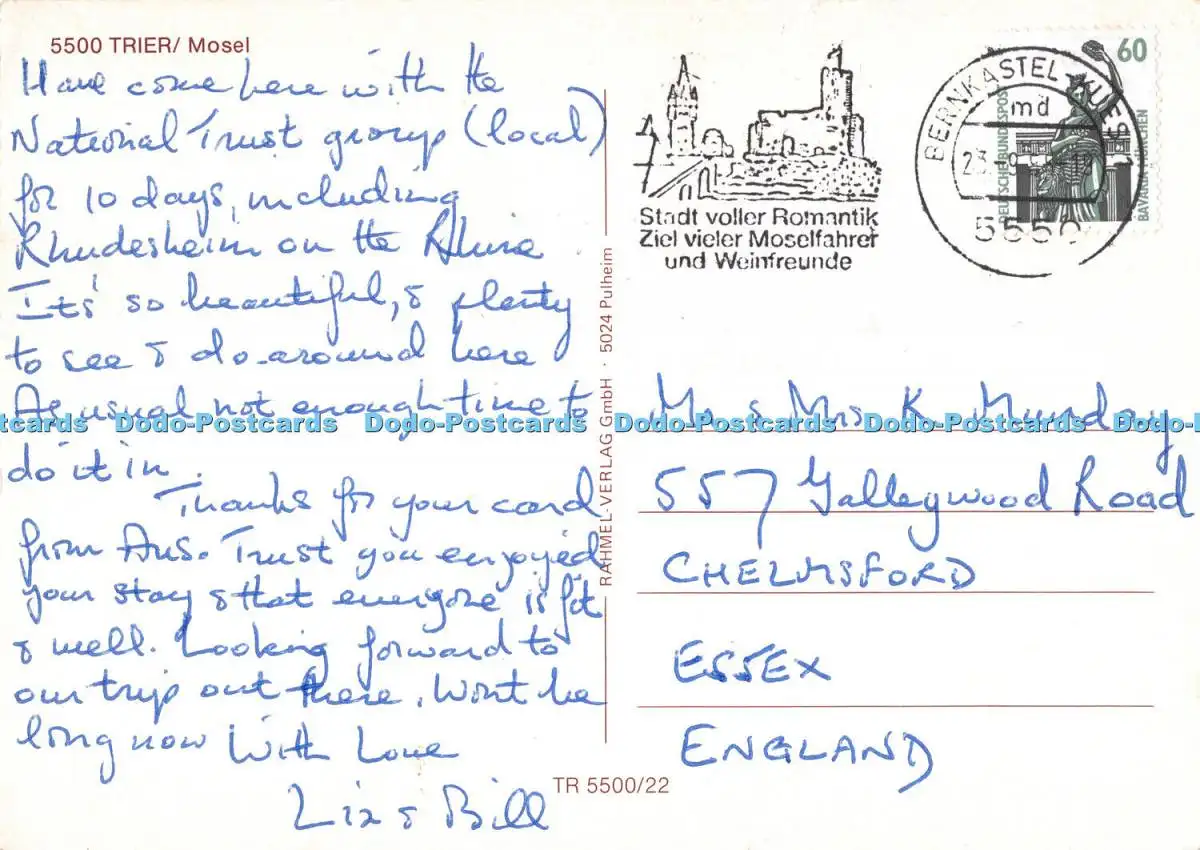 5500 TRIER/ Mosel
Have come here with the
National Trust group (local)
for 10 days, including
Rhudesheim on the Rhine
Its' so beautiful, & plenty
to see & do around here
As usual not enough time to
do it in.
Thanks for your card
from Aus. Trust you enjoyed
your stay & that everyone is fit
& well. Looking forward to
our trip out there. Wont be
long now With Love
Liz & Bill
RAHMEL-VERLAG GmbH · 5024 Pulheim
TR 5500/22
Stadt voller Romantik
Ziel vieler Moselfahrer
und Weinfreunde
BERNKASTEL-KUES
md
5550
60
DEUTSCHE BUNDESPOST
BAVARIA MÜNCHEN
Mr & Mrs K. Munday
557 Galleywood Road
CHELMSFORD
ESSEX
ENGLAND
Dodo-Postcards Dodo-Postcards Dodo-Postcards Dodo-Postcards Dodo-Postcards